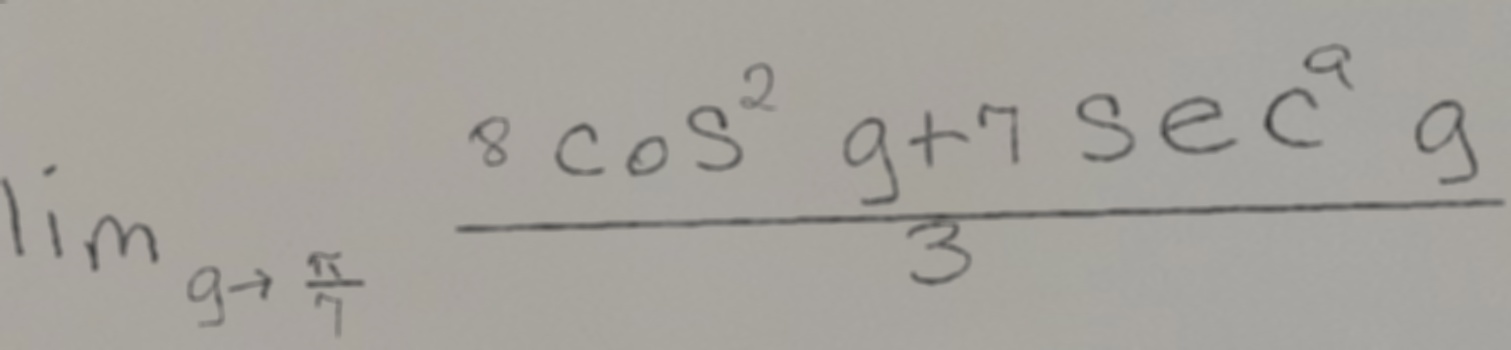 \lim_{g \to \frac{\pi}{7}} \frac{8 \cos^2 g + 7 \sec^9 g}{3}